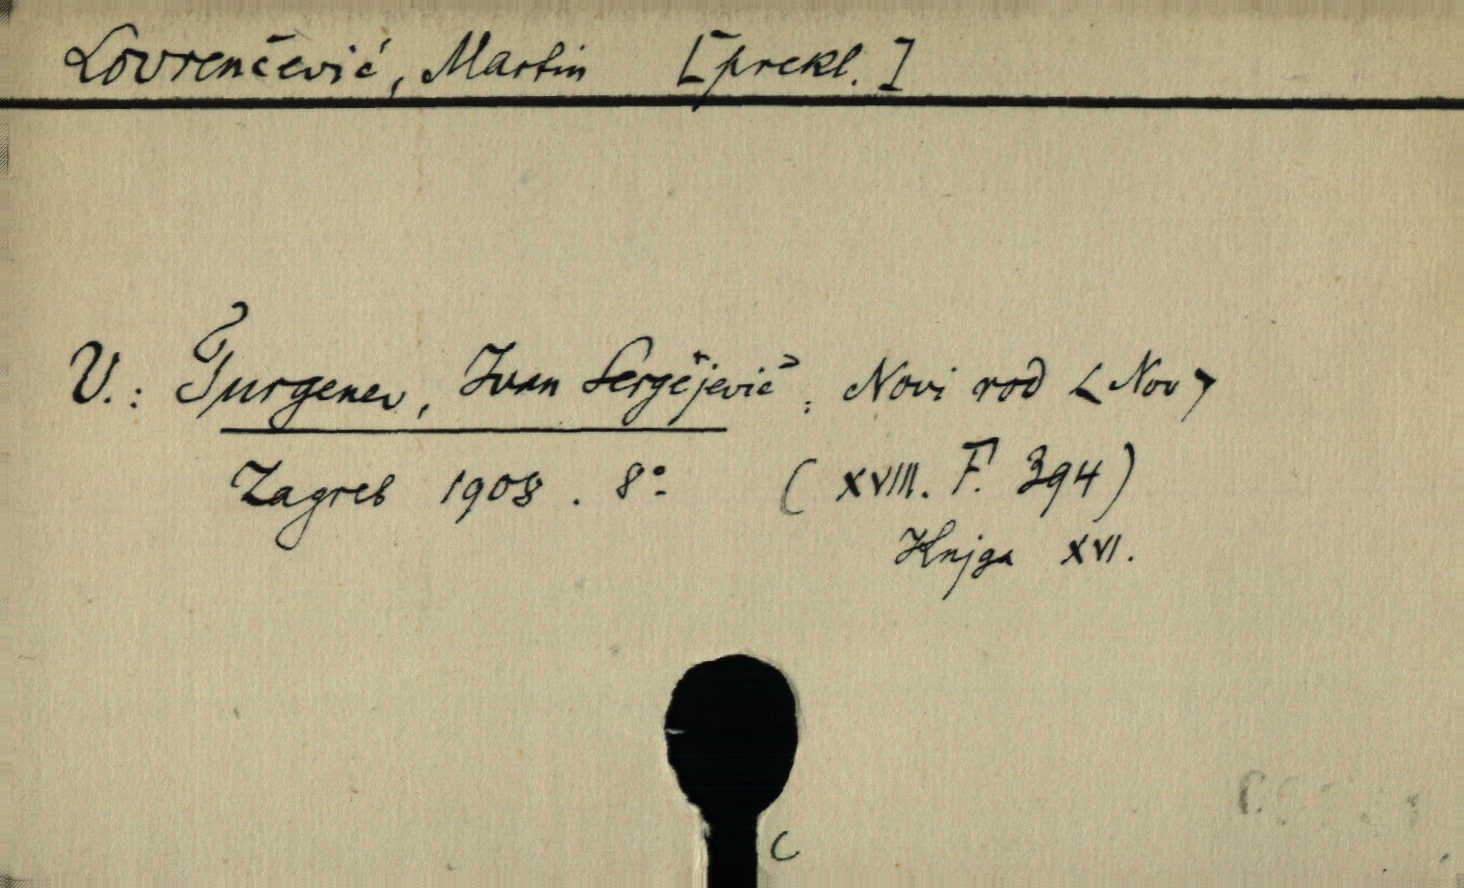 Lovrenčević, Martin [prekl.]
V.: Turgenev, Ivan Sergějevič: Novi rod <Nov>
Zagreb 1908. 8° (XVIII. F. 394)
Knjga XVI.
C